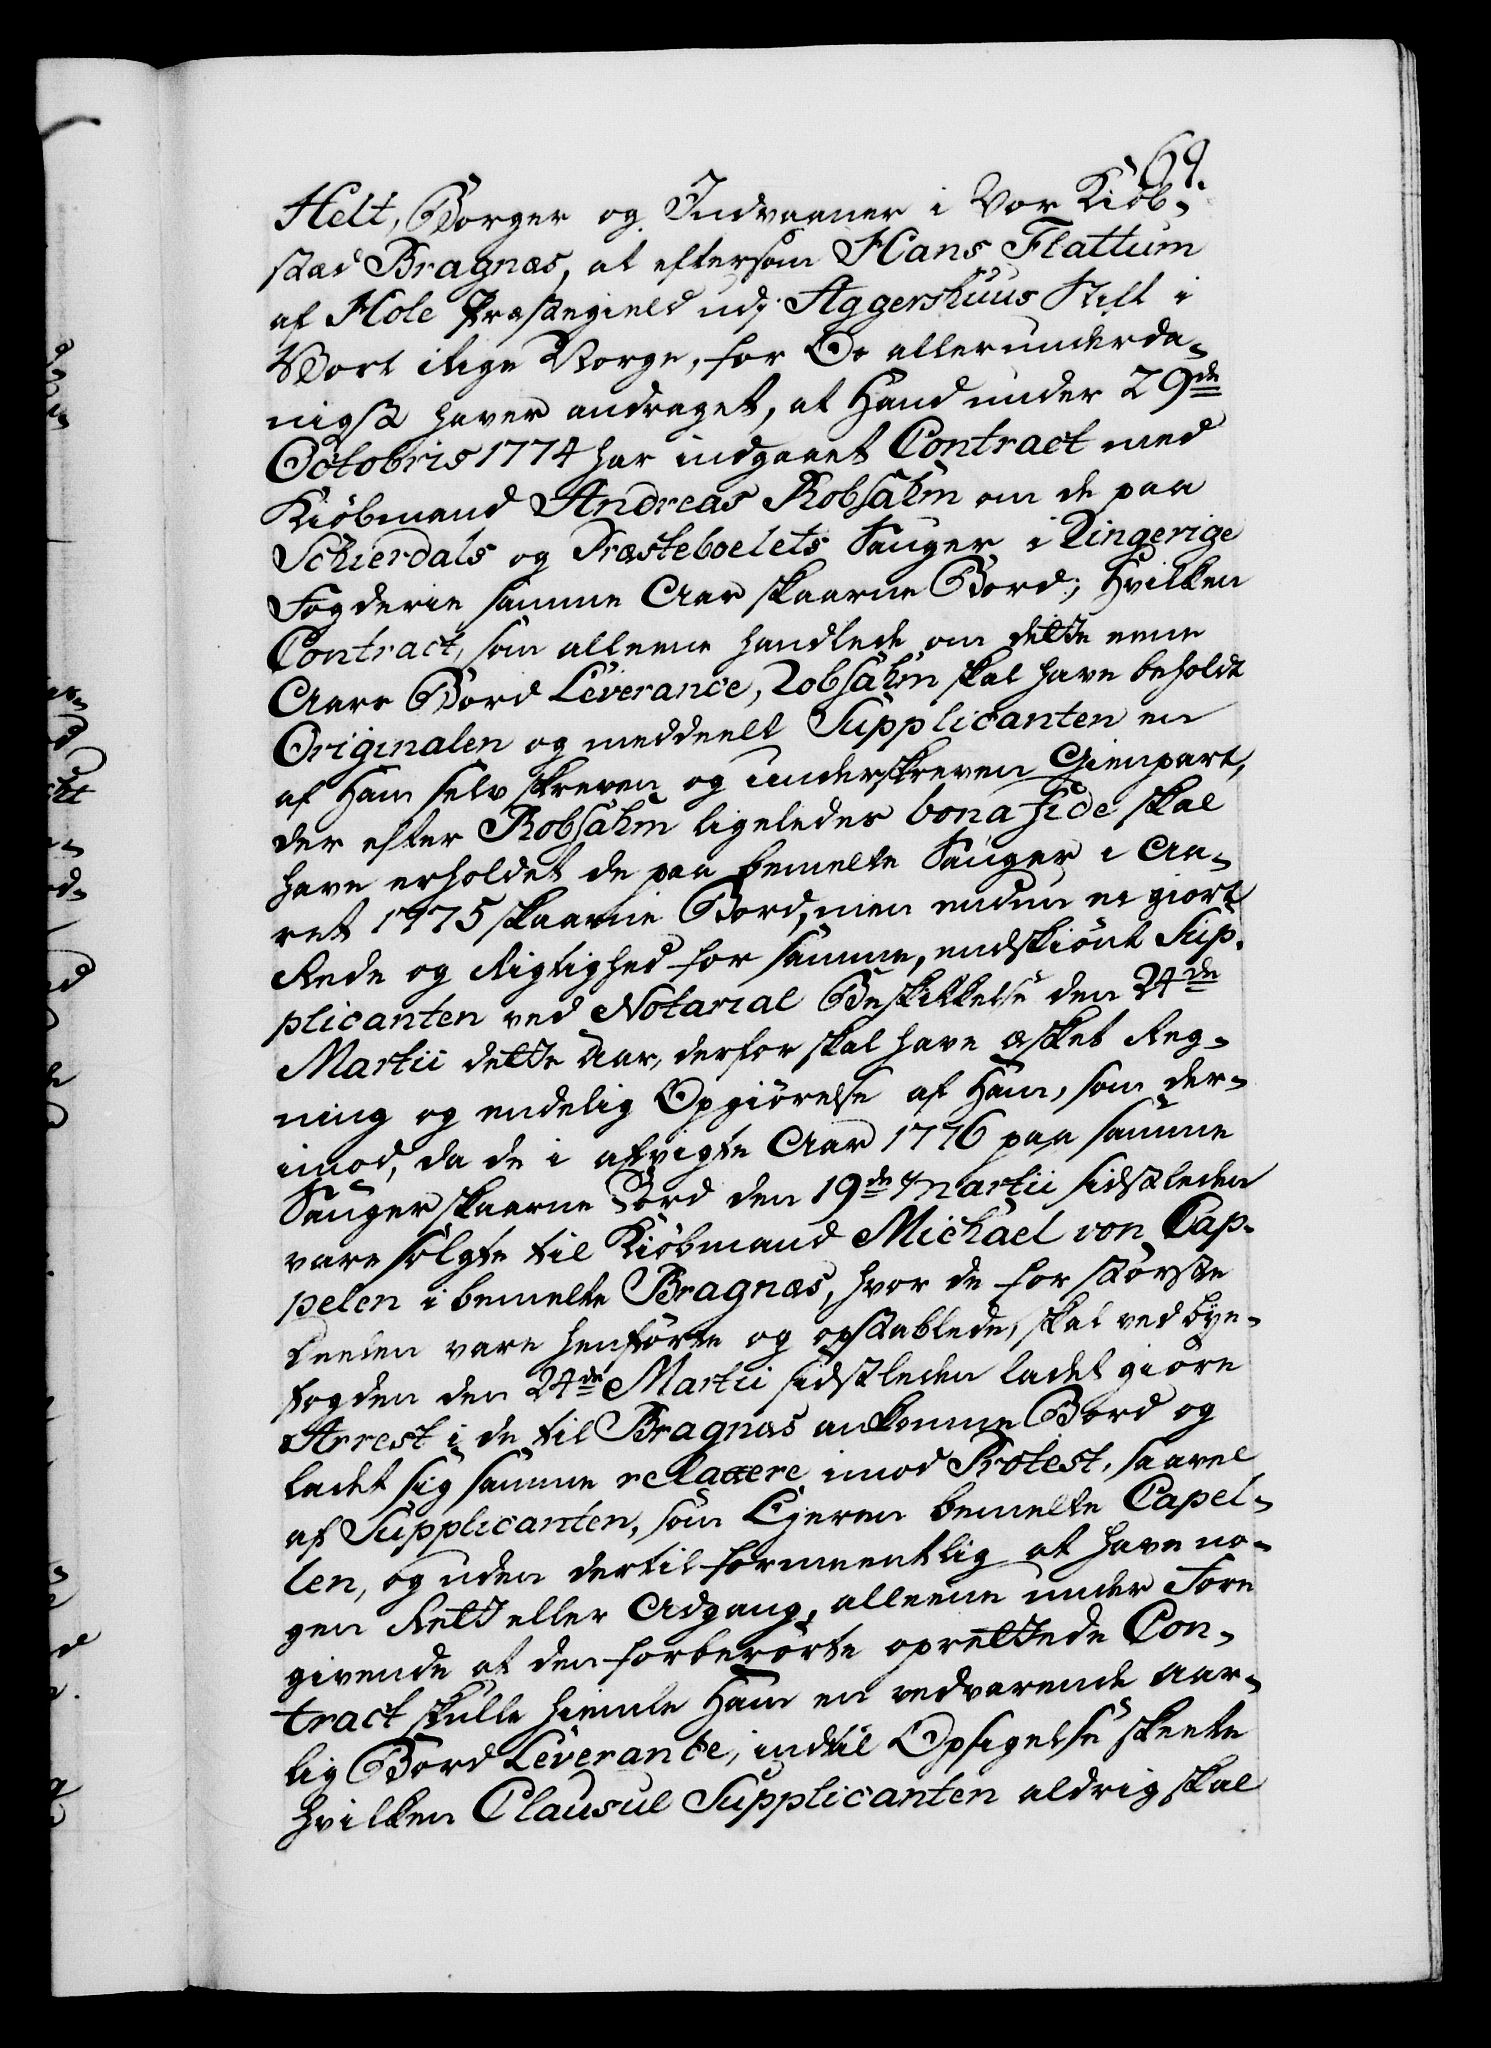 69.
Helt, Borger og Indvaaner i Vor Kiöb-
stæd Bragnæs, at eftersom Hans Flattum
af Hole Præstegield udj Aggershuus Stift i
Vort Rige Norge, for Os allerunderda-
nigst haver andraget, at Hand under 29de
Octobris 1774 har indgaaet Contract med
Kiöbmand Andreas Robsahm om de paa
Schierdals og Præsteboelets Sauger i Ringerige
Fogderie samme Aar skaarne Bord; hvilken
Contract, som alleene handlede om dette eene
Aars Bord Leverance, Robsahm skal have beholdt
Originalen og meddeelt Supplicanten en
af Ham selv skreven og underskreven Gienpart,
der efter Robsahm ligeledes bona fide skal
have erholdet de paa bemelte Sauger i Aa-
ret 1775 skaarne Bord, men endnu ei giort
Rede og Rigtighed for samme, endskiönt Sup-
plicanten ved Notarial Beskikkelse den 24de
Martii dette Aar, derfor skal have æsket Reg-
ning og endelig Opgiörelse af Ham, som der-
imod, da de i afvigte Aar 1776 paa samme
Sauger skaarne Bord den 19de Martii sidstleden
vare solgte til Kiöbmand Michael von Cap-
pelen i bemelte Bragnæs, hvor de for störste
Deelen vare henförte og opstablede, skal ved bye-
fogden den 24de Martii sidstleden ladet giöre
Arrest i de til Bragnæs ankomne Bord og
ladet sig samme relaxere imod Protest, saavel
af Supplicanten, som Ejeren bemelte Capel-
len, og uden dertil formeentlig at have no-
gen Rett eller Adgang, alleene under Fore
givende at den forberörte oprettede Con-
tract skulle hiemle Ham en vedvarende aar-
lig Bord Leverance, indtil Opsigelse skeete
hvilken Clausul Supplicanten aldrig skal